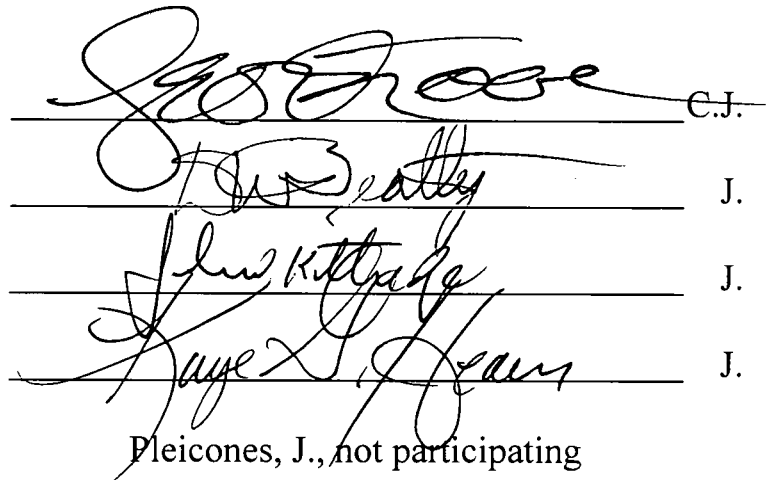 C.J.
Beatty J.
John Kittredge J.
Kaye G. Hearn J.
Pleicones, J., not participating